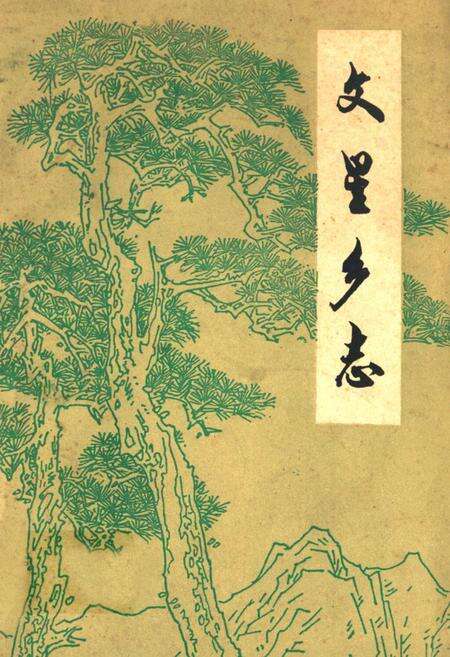 文星乡志